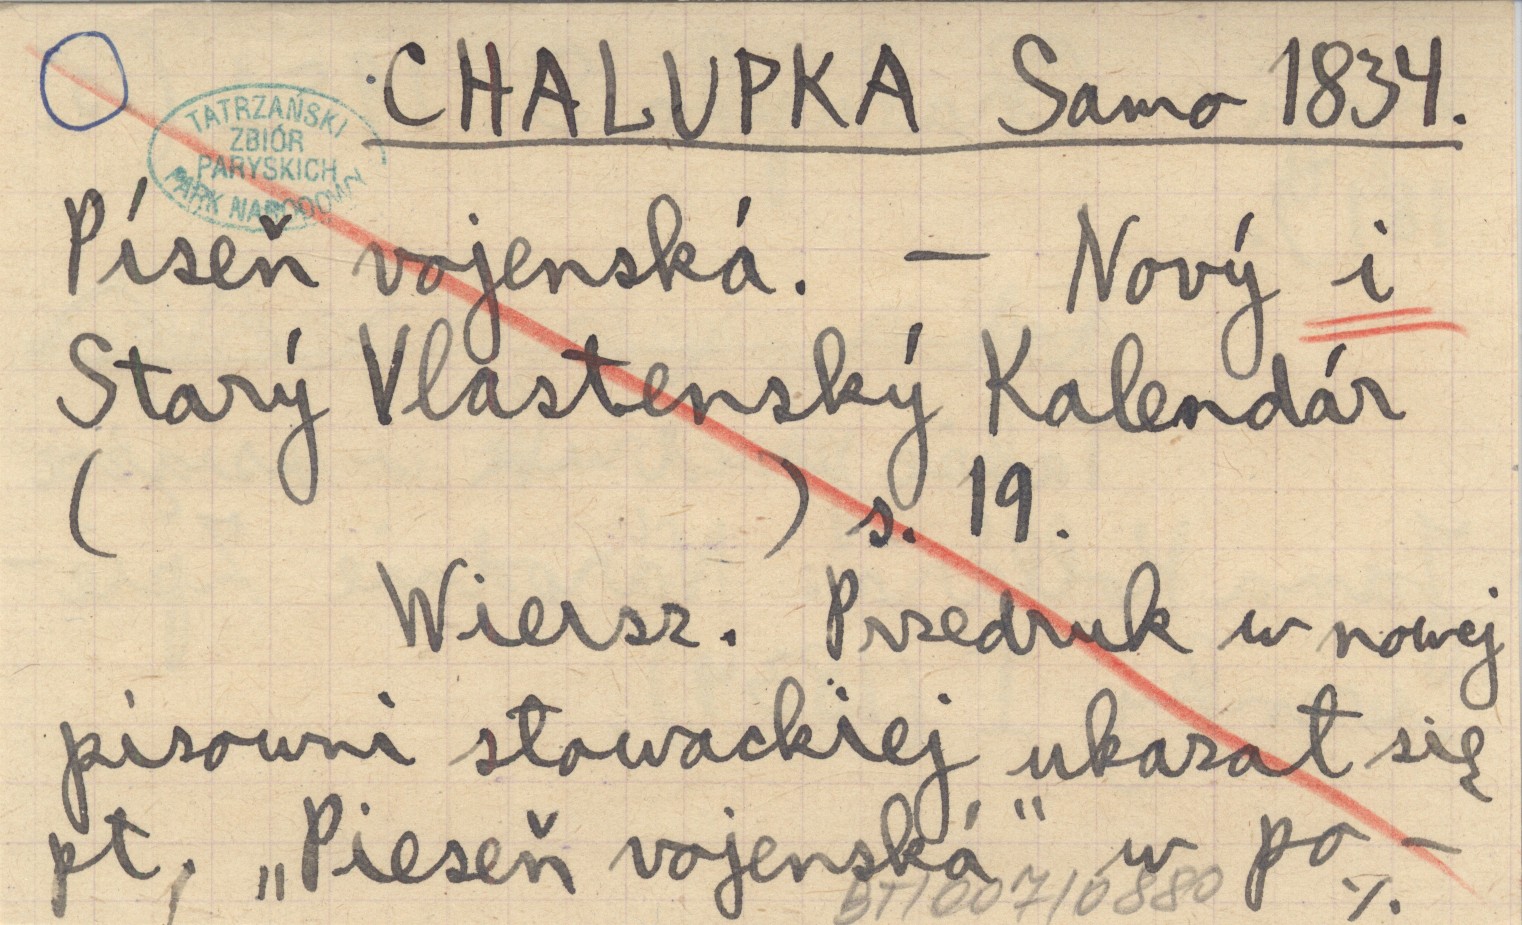 CHALUPKA Samo 1834.
TATRZAŃSKI
ZBIÓR
PARYSKICH
PARK NARODOWY
Píseň vojenská. – Nový i
Starý Vlastenský Kalendár
( ) s. 19.
Wiersz. Przedruk w nowej
pisowni słowackiej ukazał się
pt. „Pieseň vojenská" w po-
BT/007/0880
./.